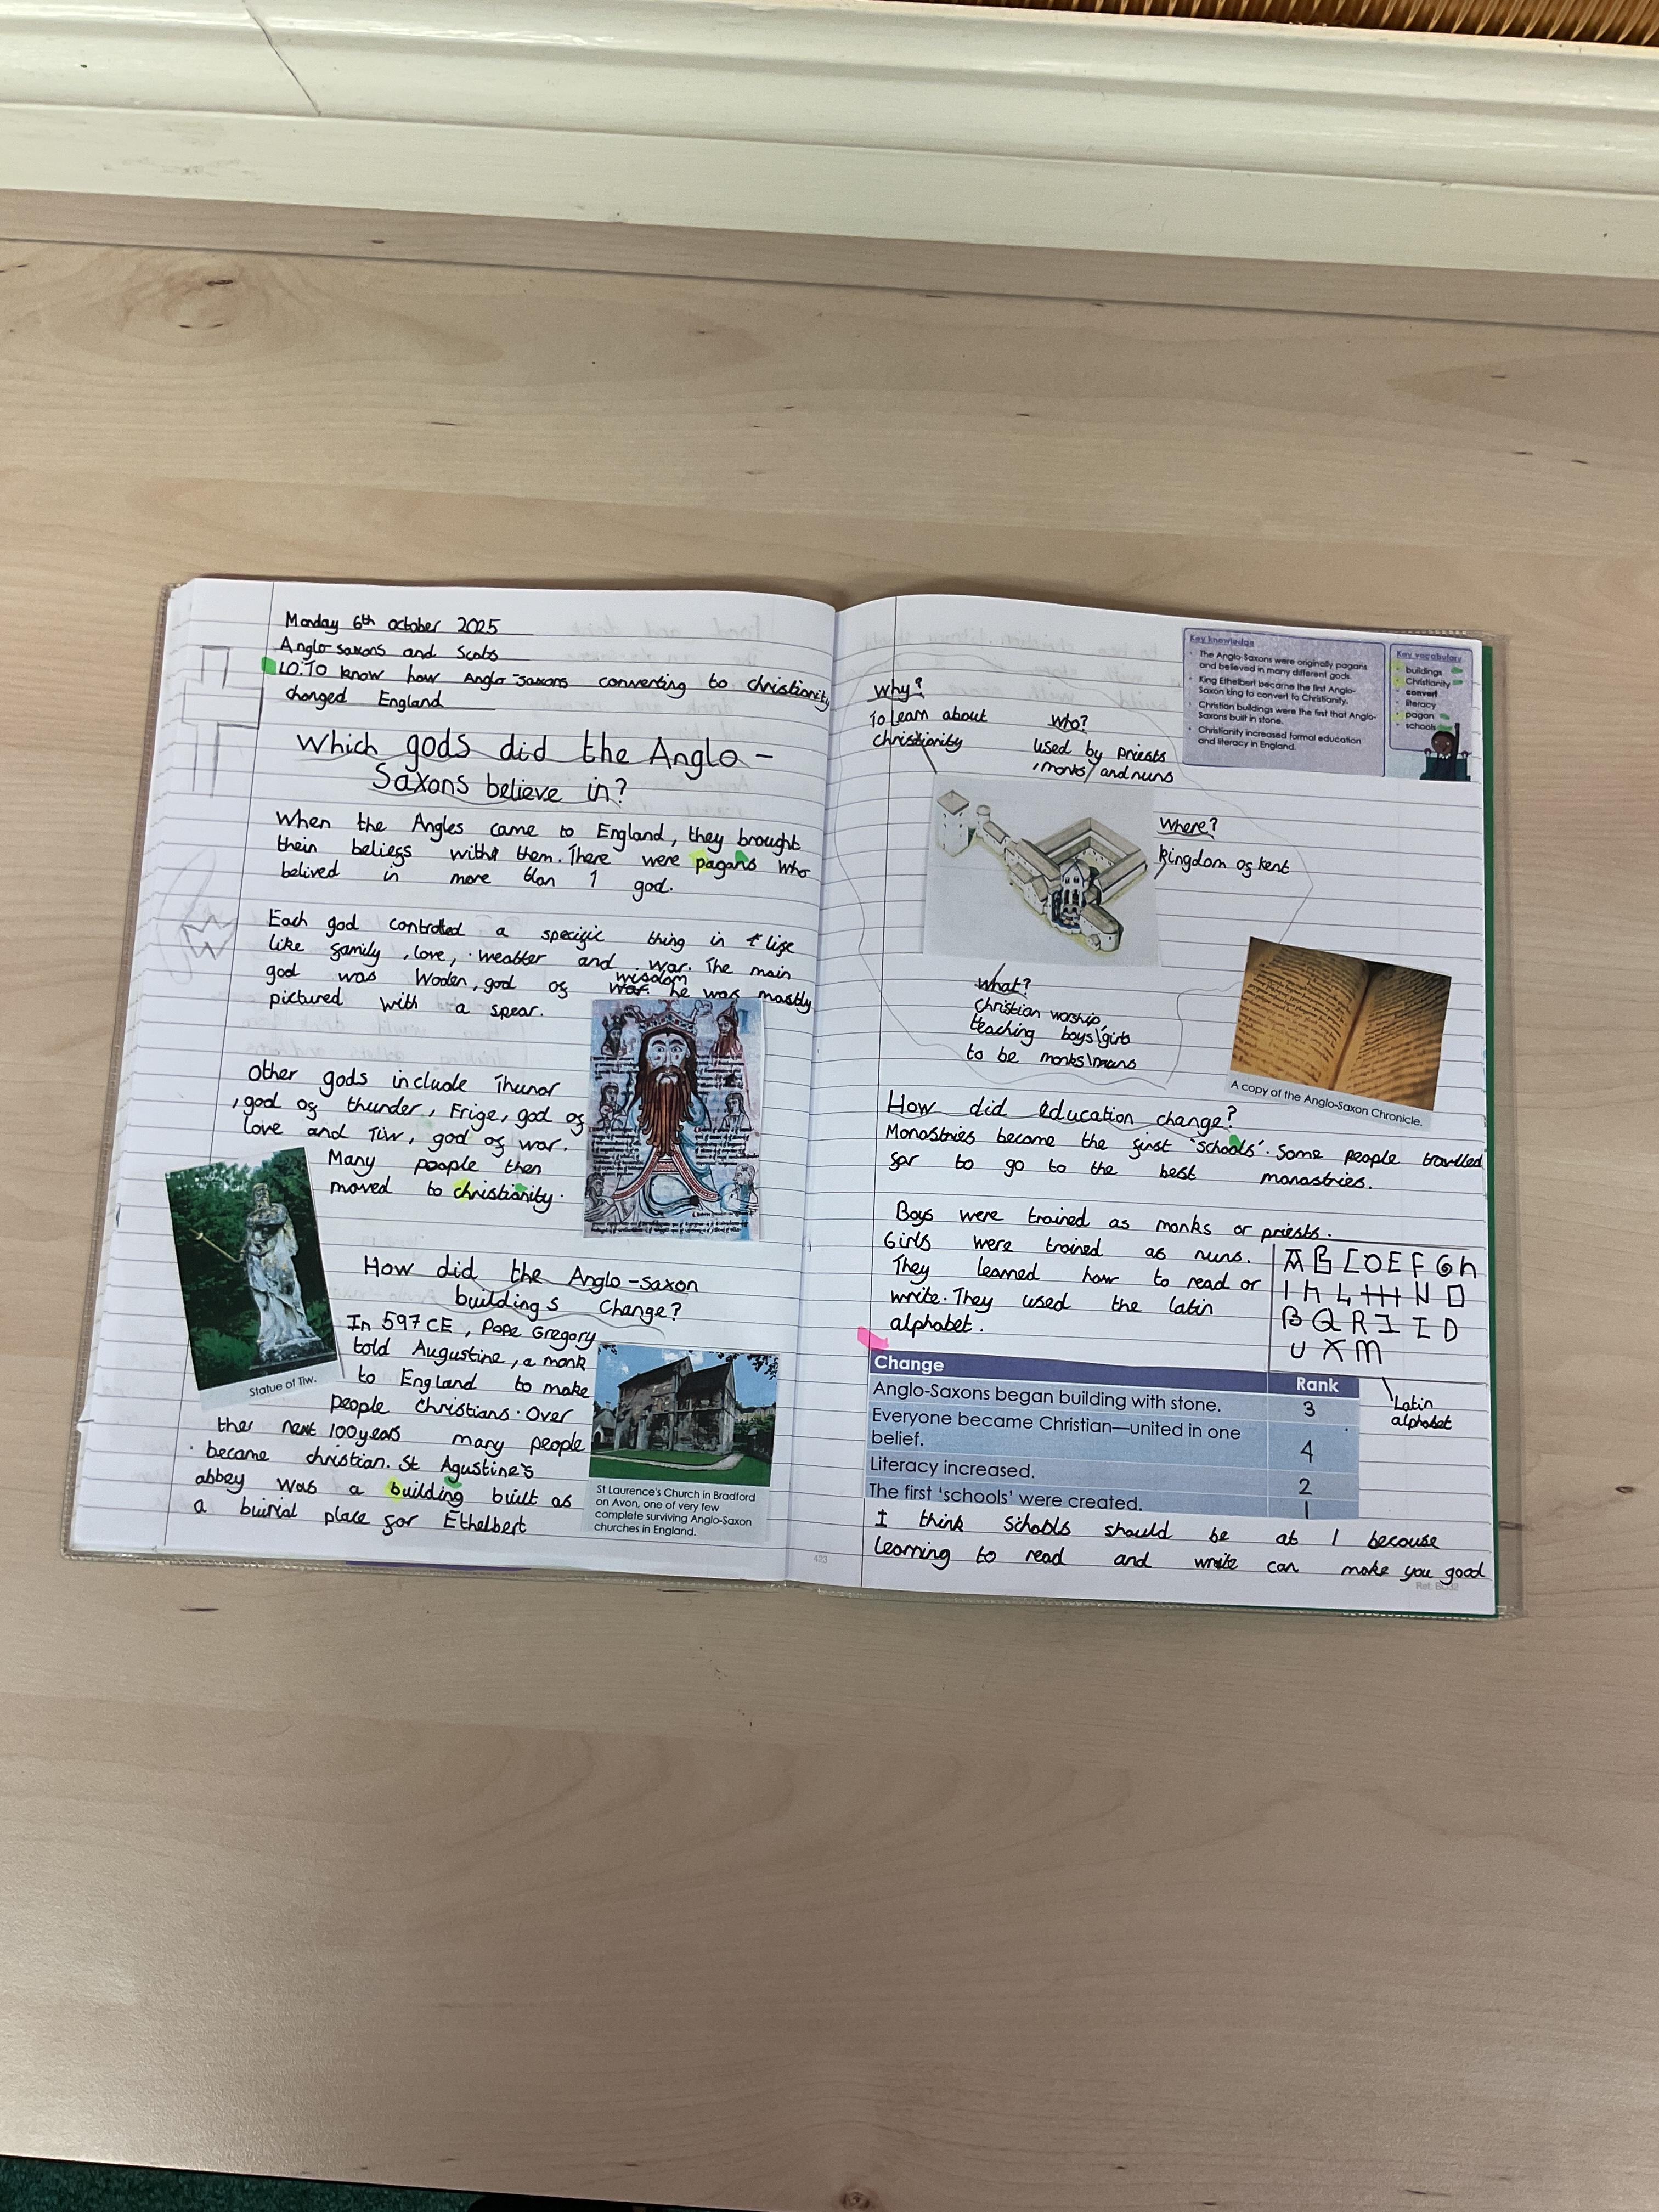 Monday 6th october 2025
Anglo-saxons and Scots
LO:To know how Anglo-saxons converting to christianity
changed England
Which gods did the Anglo-
Saxons believe in?
When the Angles came to England, they brought
their beliefs with them. There were pagans who
belived in more than 1 god.
Each god controlled a specific thing in life
like family, love, weather and war. The main
god was Woden, god of wisdom
war. he was mostly
pictured with a spear.
Other gods include Thunor
, god of thunder, Frige, god of
love and Tiw, god of war.
Many people then
moved to christianity.
Statue of Tiw.
How did the Anglo-saxon
buildings change?
In 597 CE, Pope Gregory
told Augustine, a monk
to England to make
people Christians. Over
the next 100 years many people
became christian. St Agustine's
abbey was a building built as
a buirial place for Ethelbert
St Laurence's Church in Bradford
on Avon, one of very few
complete surviving Anglo-Saxon
churches in England.
423
Key knowledge
The Anglo-Saxons were originally pagans
and believed in many different gods.
King Ethelbert became the first Anglo-
Saxon king to convert to Christianity.
Christian buildings were the first that Anglo-
Saxons built in stone.
Christianity increased formal education
and literacy in England.
Key vocabulary
buildings
Christianity
convert
literacy
pagan
schools
Why?
To learn about
christianity
Who?
used by priests
, monks/ and nuns
Where?
kingdom of kent
What?
Christian worship
teaching boys\girls
to be monks\nuns
A copy of the Anglo-Saxon Chronicle.
How did education change?
Monastries became the first 'schools'. Some people travelled
far to go to the best monastries.
Boys were trained as monks or priests.
Girls were trained as nuns.
They learned how to read or
write. They used the latin
alphabet.
Latin
alphabet
Change Rank
Anglo-Saxons began building with stone. 3
Everyone became Christian—united in one
belief. 4
Literacy increased. 2
The first 'schools' were created. 1
I think schools should be at 1 becouse
learning to read and write can make you good